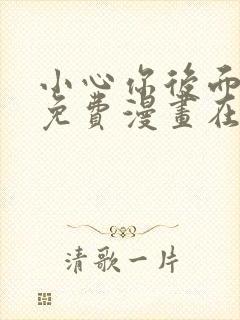 小心你後而
免費漫畫在
清歌一片